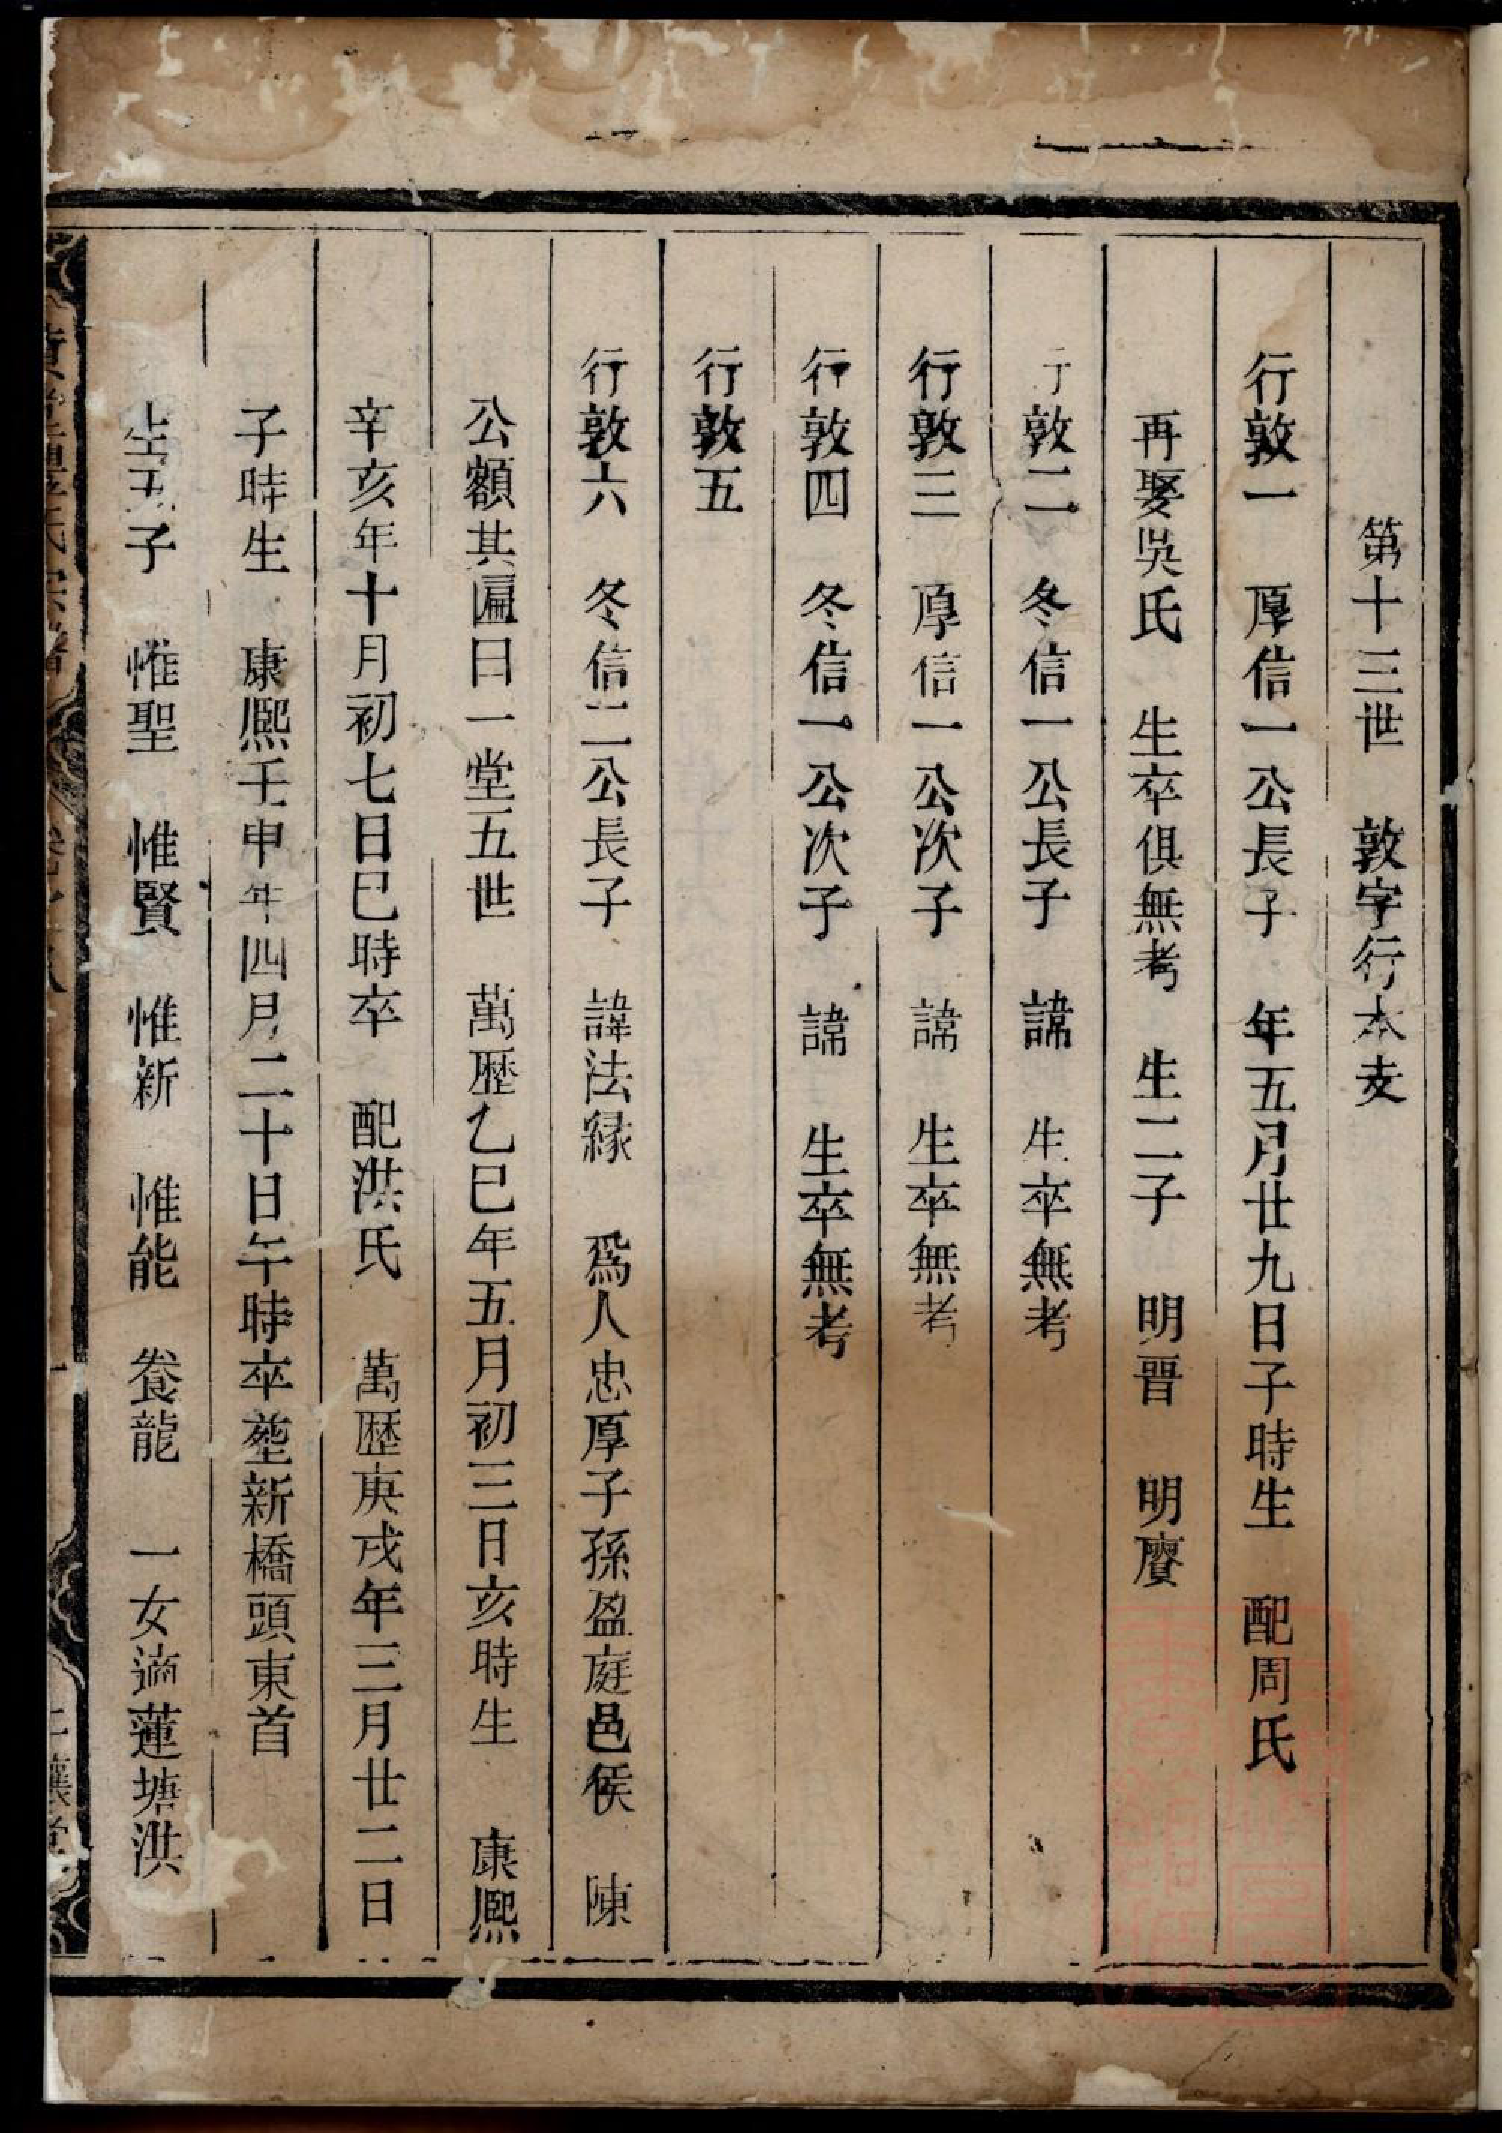 第十三世　敦字行本支
行敦一　厚信一公長子　年五月廿九日子時生　配周氏
再娶吳氏　生卒俱無考　生二子　明晉　明賡
行敦二　冬信一公長子　諱　生卒無考
行敦三　厚信一公次子　諱　生卒無考
行敦四　冬信一公次子　諱　生卒無考
行敦五
行敦六　冬信二公長子　諱法緣　爲人忠厚子孫盈庭邑侯　陳
公額其匾曰一堂五世　萬歷乙巳年五月初三日亥時生　康熙
辛亥年十月初七日巳時卒　配洪氏　萬歷庚戌年三月廿二日
子時生　康熙壬申年四月二十日午時卒塟新橋頭東首
生五子　惟聖　惟賢　惟新　惟能　養龍　一女適蓮塘洪